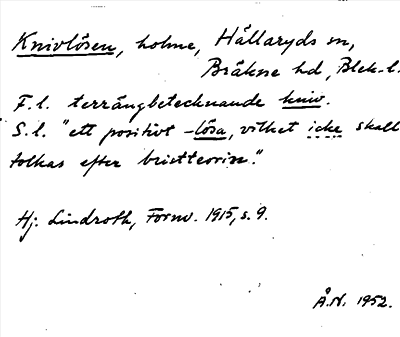 Knivlösen, holme, Hällaryds sn,
Bräkne hd, Blek. l.
F. l. terrängbetecknande kniv.
S. l. "ett positivt -lösa, vilket icke skall
tolkas efter bristteorin."
Hj. Lindroth, Fornv. 1915, s. 9.
Å.N. 1952.